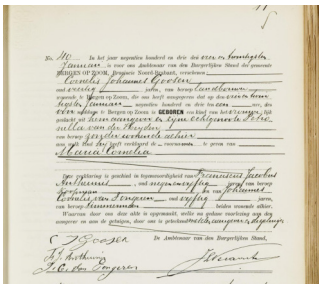 No. 40 In het jaar negentien honderd en drie den vier en twintigsten
Januari is voor ons Ambtenaar van den Burgerlijken Stand der gemeente
BERGEN OP ZOOM, Provincie Noord-Brabant, verschenen:
Cornelis Johannes Goosen
oud veertig jaren, van beroep landbouwer
wonende te Bergen op Zoom, die ons heeft aangegeven dat op den vier en twin
tigsten Januari negentien honderd en drie ten ure, des
te Bergen op Zoom is GEBOREN een kind van het vrouwelijk
geslacht uit hem aangever en zijne echtgenoote
nella van der Heyden
van beroep zonder wonende alhier
aan welk kind zij heeft verklaard de voornamen te geven van
Maria Cornelia
Deze verklaring is geschied in tegenwoordigheid van Franciscus Jacobus
Anthonius, oud negen en vijftig jaren, van beroep
en van Johannes
Cornelis van Dongeren oud vijftig jaren,
van beroep timmerman beiden wonende alhier.
Waarvan door ons deze akte is opgemaakt, welke na gedane voorlezing aan den
aangever en aan de getuigen, door ons is geteekend
De Ambtenaar van den Burgerlijken Stand,
C J Goosen
F. J. Anthonius
J. C. van Dongeren